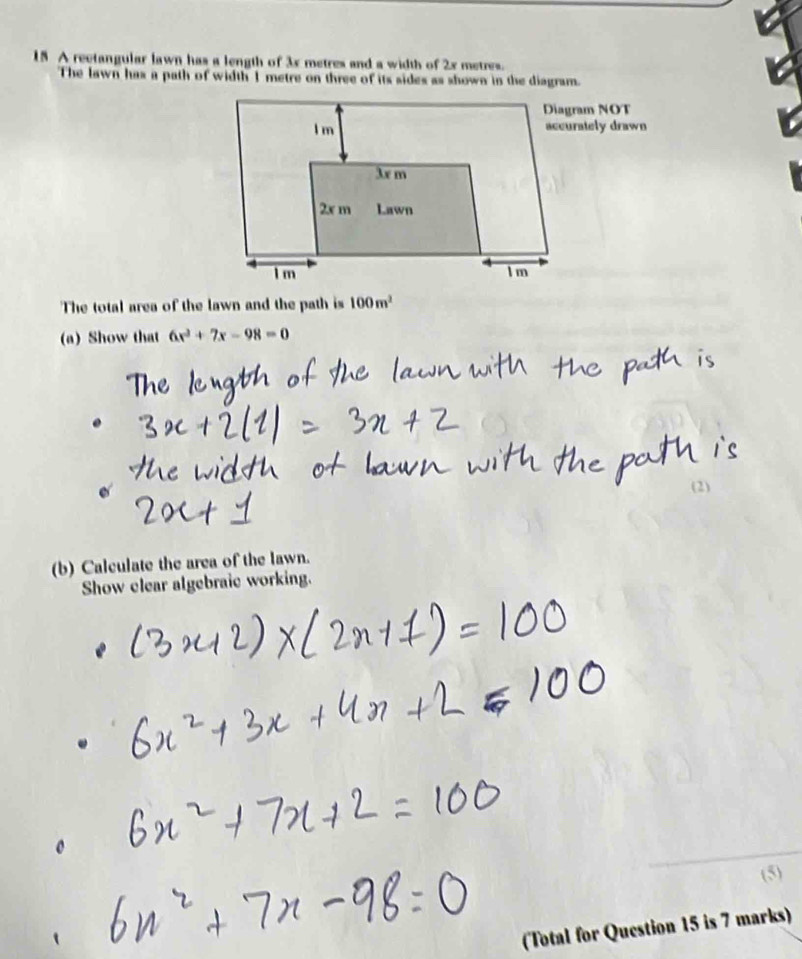 15 A rectangular lawn has a length of 3x metres and a width of 2x metres.
The lawn has a path of width 1 metre on three of its sides as shown in the diagram.
Diagram NOT
accurately drawn
1 m
3x m
2x m Lawn
1 m 1 m
The total area of the lawn and the path is 100 m²
(a) Show that 6x² + 7x – 98 = 0
The length of the lawn with the path is
• 3x + 2(1) = 3x + 2
the width of lawn with the path is
(2)
• 2x + 1
(b) Calculate the area of the lawn.
Show clear algebraic working.
• (3x+2) × (2x+1) = 100
• 6x² + 3x + 4x + 2 = 100
• 6x² + 7x + 2 = 100
(5)
• 6x² + 7x - 98 = 0
(Total for Question 15 is 7 marks)